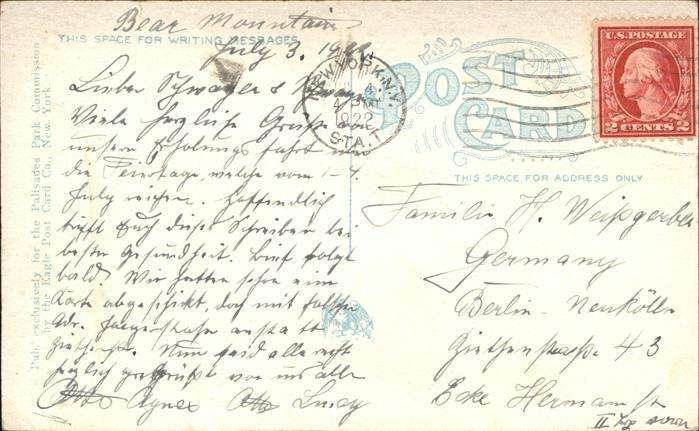 Bear Mountain
THIS SPACE FOR WRITING MESSAGES
July 3. 1922
Lieber Schwager &
Viele herzliche Grüße von
unserer Erholungsfahrt über
die Feiertage, welche vom 1-4.
July reichen. Hoffendlich
trifft Euch dieses Schreiben bei
bester Gesundheit. Brief folgt
bald. Wir hatten schon eine
Karte abgeschickt, doch mit falscher
Adr. Jaegerstraße anstatt
Ziethenstr. Nun seid alle recht
herzlich gegrüßt von uns allen
Otto Agnes Otto Lucy
Pub. exclusively for the Palisades Park Commission
by the Eagle Post Card Co., New York
NEW YORK, N.Y.
1922
STA.
POST CARD
U.S. POSTAGE
2 CENTS 2
THIS SPACE FOR ADDRESS ONLY
Familie H. Weißgerber
Germany
Berlin-Neukölln
Ziethenstraße 43
Ecke Hermannstr
II Trp vorn